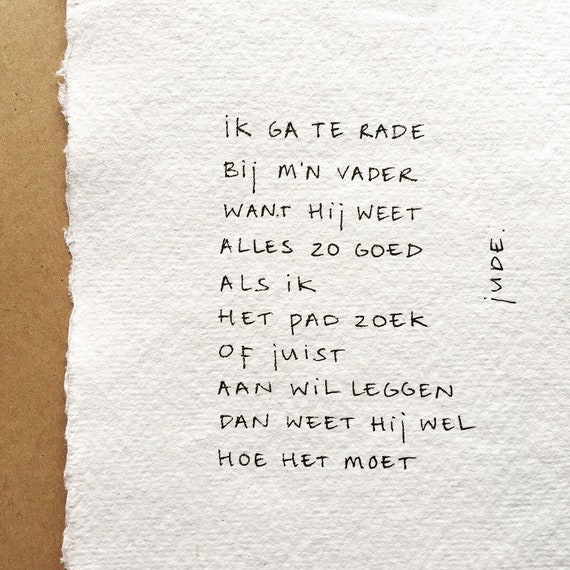 iK GA TE RADE
Bij M'N VADER
WANT Hij WEET
ALLES ZO GOED
ALS iK
HET PAD ZOEK
OF juiST
AAN WiL LEGGEN
DAN WEET Hij WEL
HOE HET MOET
jude.